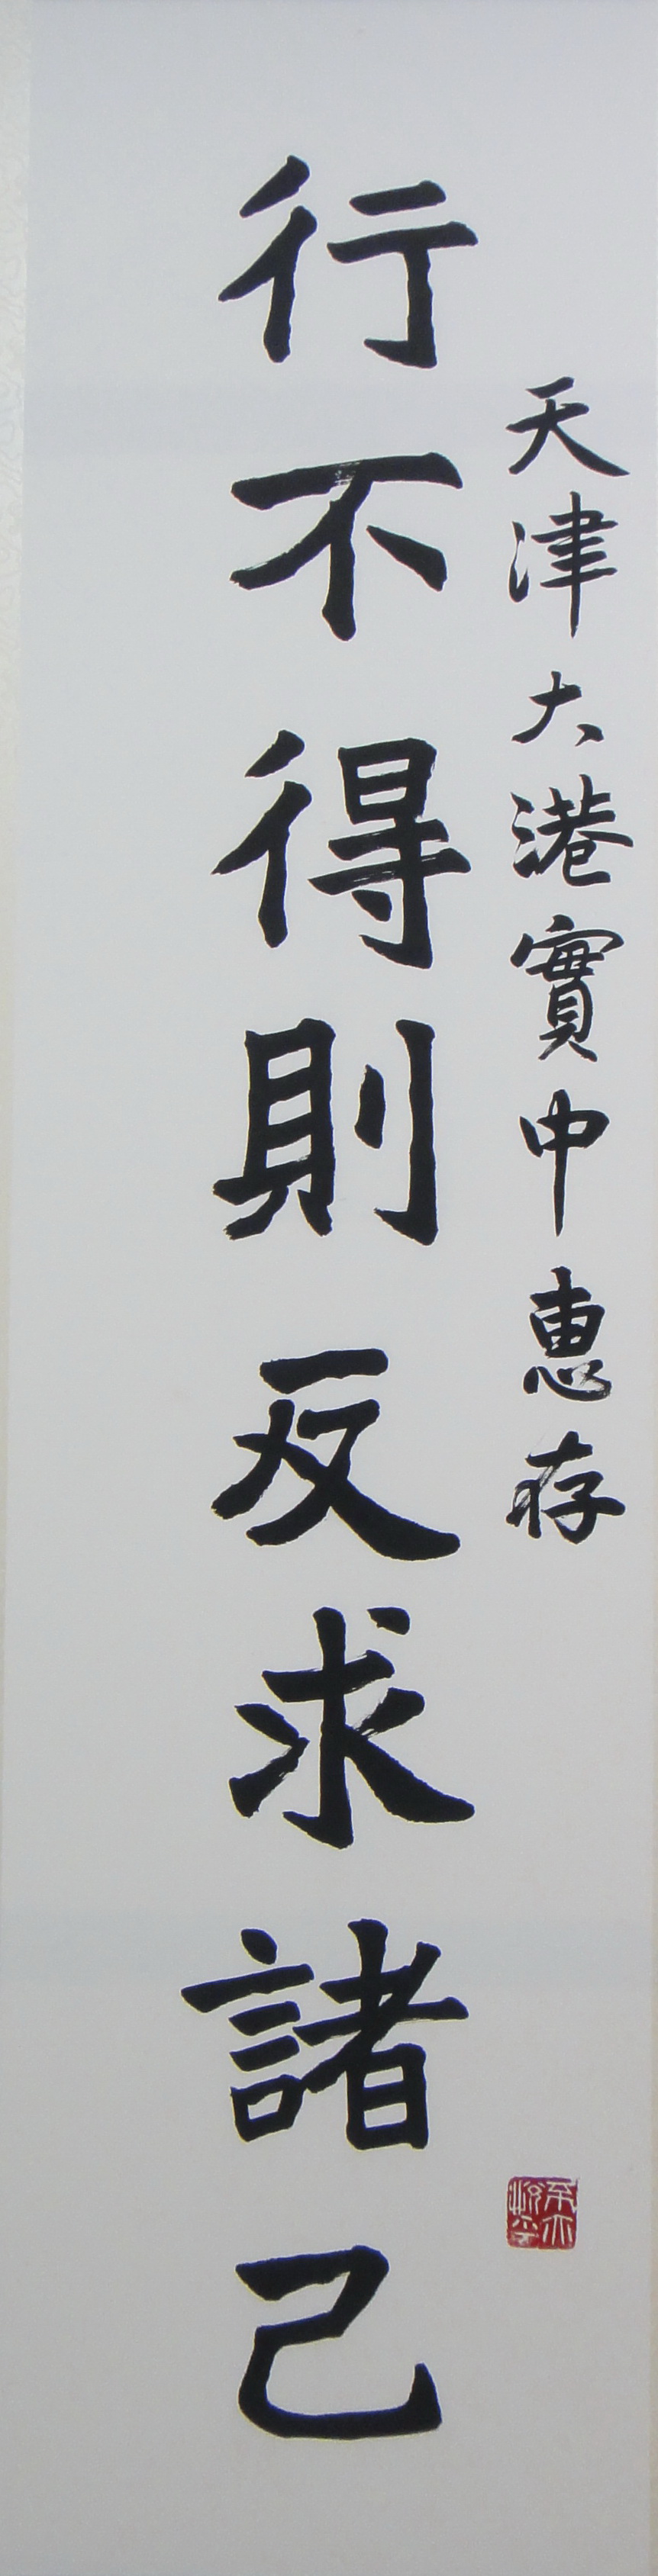 天津大港實中惠存
行不得則反求諸己